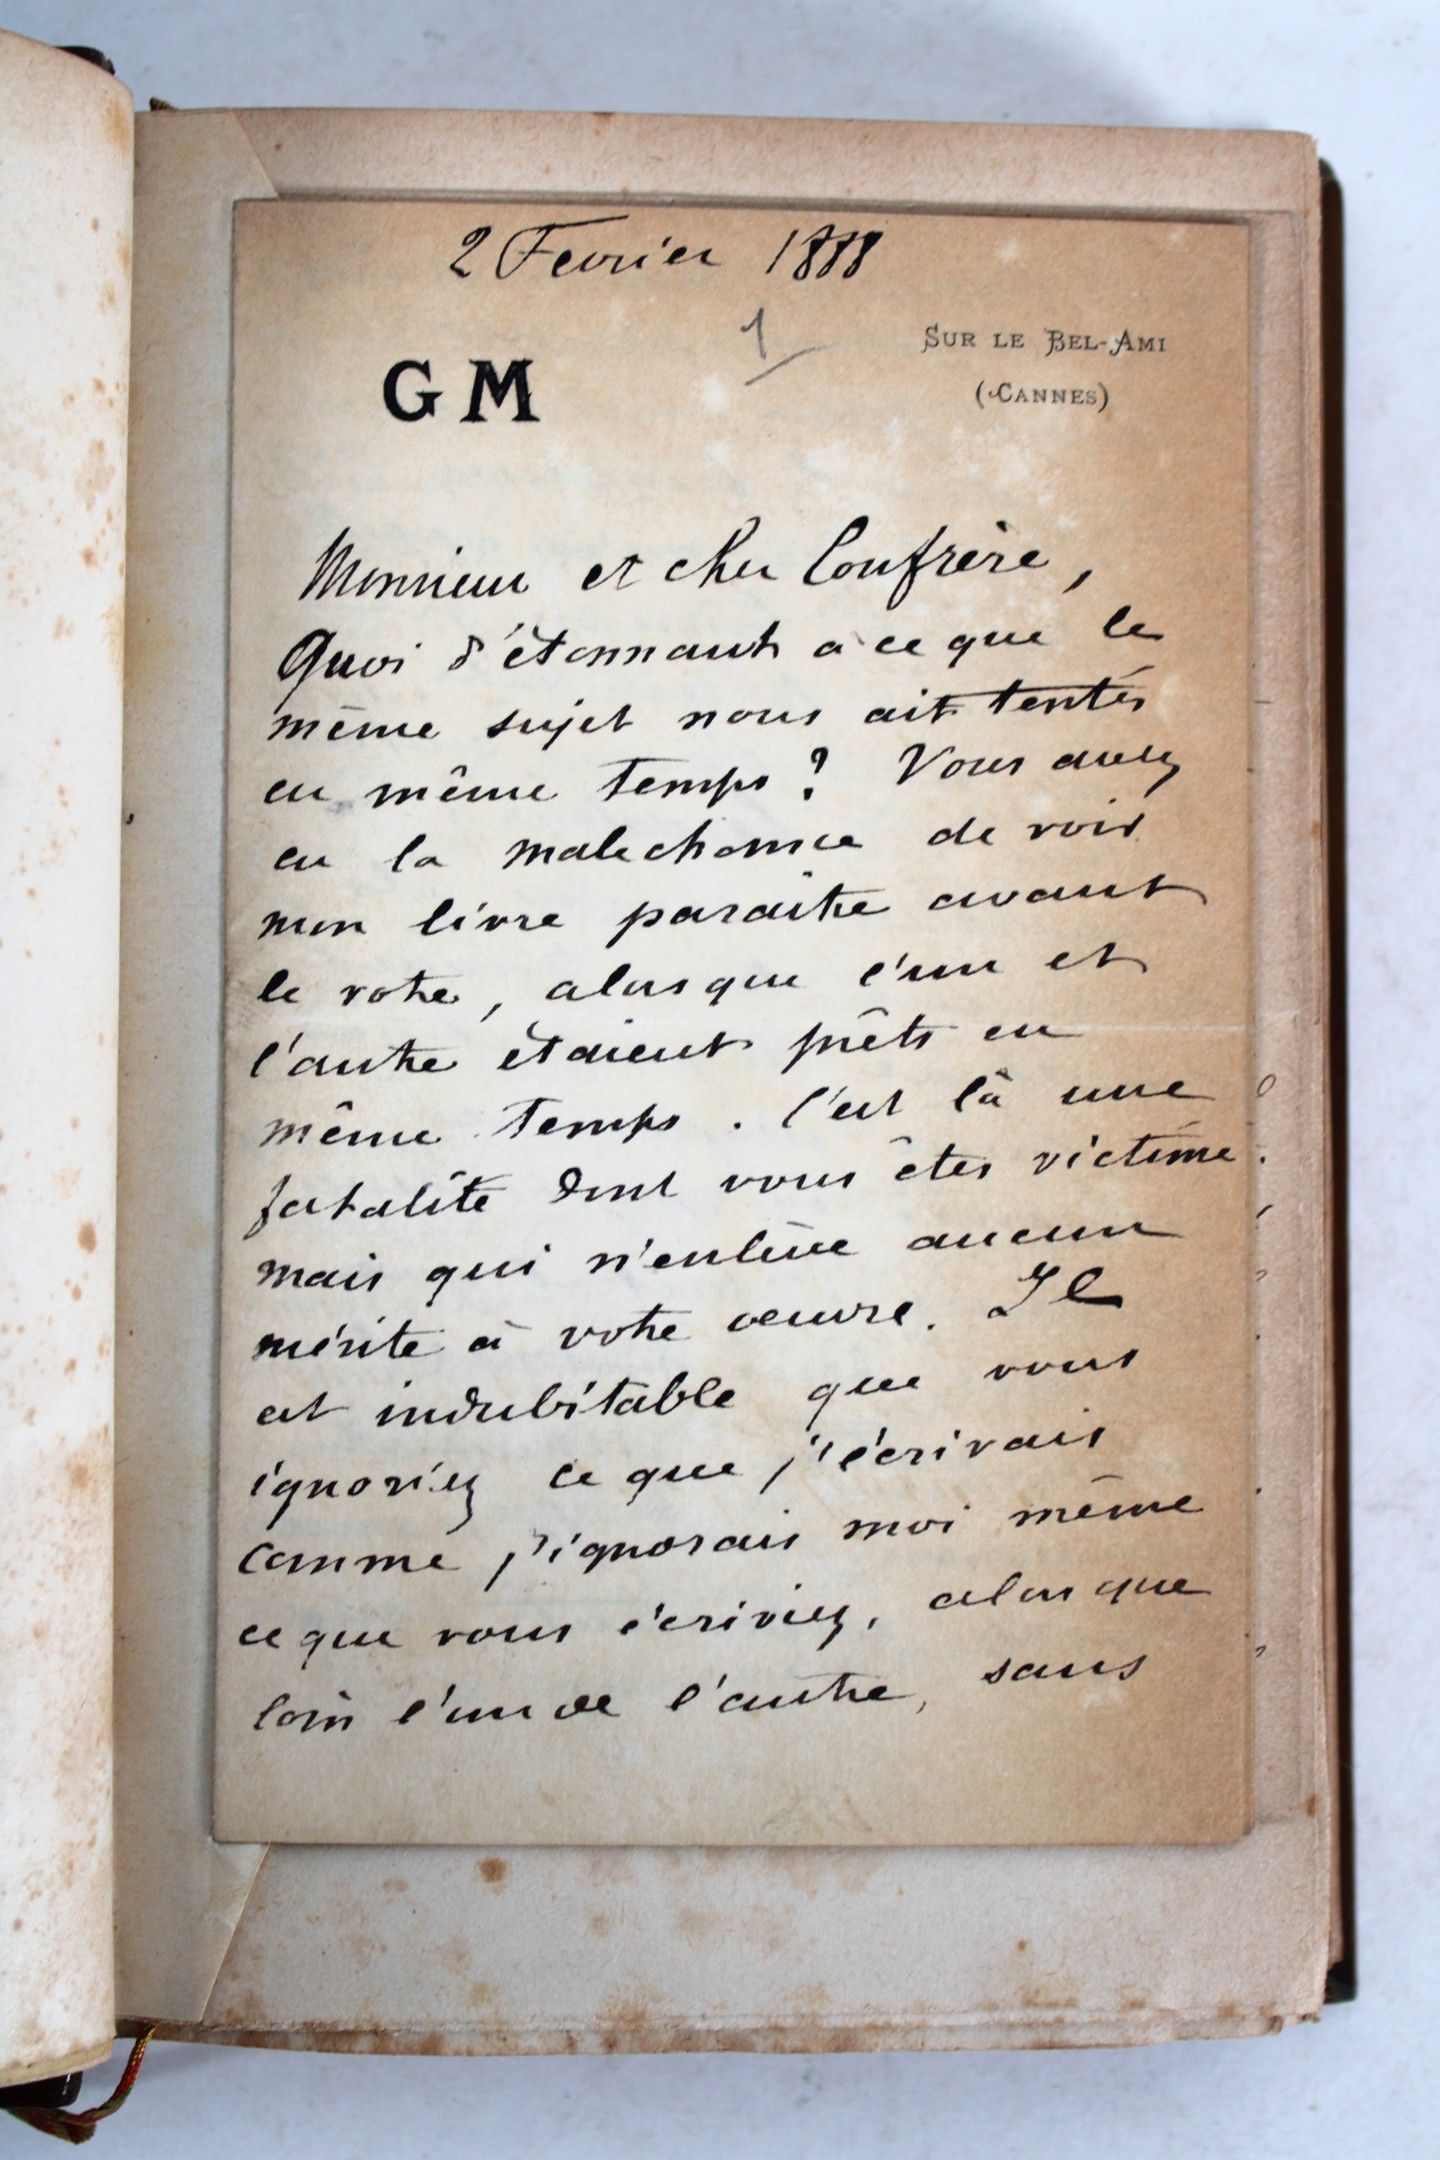 2 Fevrier 1888
1
SUR LE BEL-AMI
(CANNES)
GM
Monsieur et cher Confrère,
Quoi d'étonnant à ce que le
même sujet nous ait tentés
en même temps? Vous avez
eu la malechance de voir
mon livre paraître avant
le votre, alors que l'un et
l'autre étaient prêts en
même temps. C'est là une
fatalité dont vous êtes victime
mais qui n'enlève aucun
mérite à votre oeuvre. Il
est indubitable que vous
ignoriez ce que j'écrivais
comme j'ignorais moi même
ce que vous écriviez, alors que
loin l'un de l'autre, sans